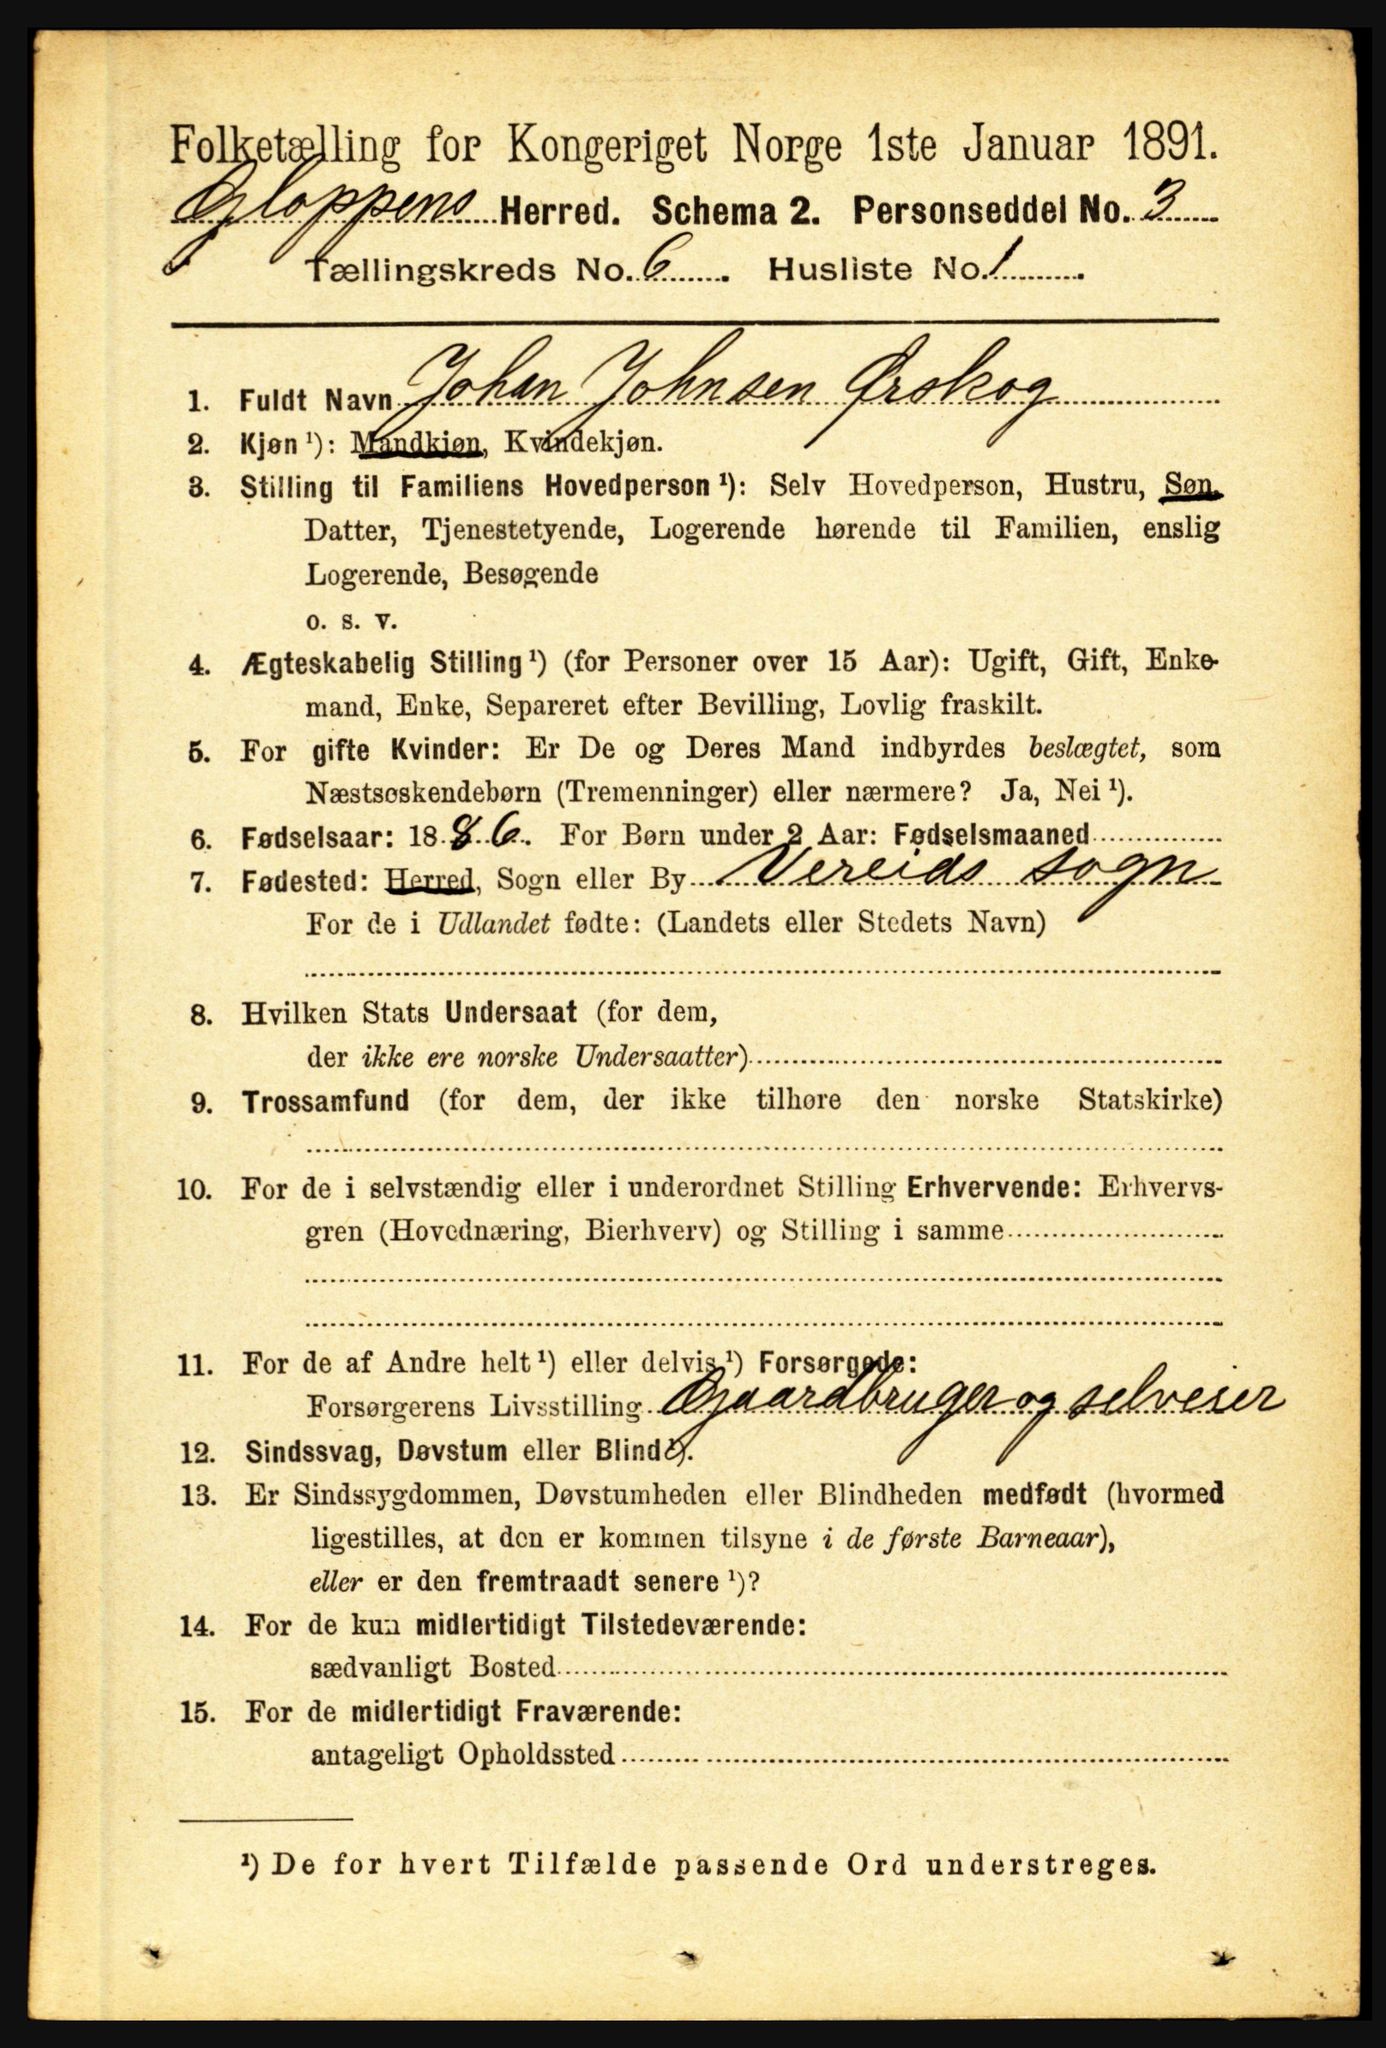 Folketælling for Kongeriget Norge 1ste Januar 1891.
Gloppens Herred. Schema 2. Personseddel No. 3
Tællingskreds No. 6. Husliste No. 1.
1. Fuldt Navn Johan Johnsen Ørskog
2. Kjøn ¹): Mandkjøn, Kvindekjøn.
3. Stilling til Familiens Hovedperson ¹): Selv Hovedperson, Hustru, Søn,
Datter, Tjenestetyende, Logerende hørende til Familien, enslig
Logerende, Besøgende
o. s. v.
4. Ægteskabelig Stilling ¹) (for Personer over 15 Aar): Ugift, Gift, Enke-
mand, Enke, Separeret efter Bevilling, Lovlig fraskilt.
5. For gifte Kvinder: Er De og Deres Mand indbyrdes beslægtet, som
Næstsøskendebørn (Tremenninger) eller nærmere? Ja, Nei ¹).
6. Fødselsaar: 1886. For Børn under 2 Aar: Fødselsmaaned
7. Fødested: Herred, Sogn eller By Vereids sogn
For de i Udlandet fødte: (Landets eller Stedets Navn)
8. Hvilken Stats Undersaat (for dem,
der ikke ere norske Undersaatter)
9. Trossamfund (for dem, der ikke tilhøre den norske Statskirke)
10. For de i selvstændig eller i underordnet Stilling Erhvervende: Erhvervs-
gren (Hovednæring, Bierhverv) og Stilling i samme
11. For de af Andre helt ¹) eller delvis ¹) Forsørgede:
Forsørgerens Livsstilling Gaardbruger og selveier
12. Sindssvag, Døvstum eller Blind ¹).
13. Er Sindssygdommen, Døvstumheden eller Blindheden medfødt (hvormed
ligestilles, at den er kommen tilsyne i de første Barneaar),
eller er den fremtraadt senere ¹)?
14. For de kun midlertidigt Tilstedeværende:
sædvanligt Bosted
15. For de midlertidigt Fraværende:
antageligt Opholdssted
¹) De for hvert Tilfælde passende Ord understreges.